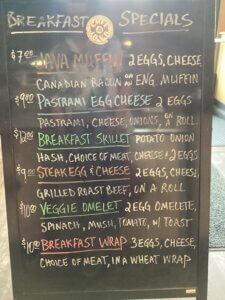 BREAKFAST SPECIALS
$7.00 JAVA MUFFIN 2 EGGS, CHEESE,
CANADIAN BACON ON ENG. MUFFIN
$9.00 PASTRAMI EGG CHEESE 2 EGGS
PASTRAMI, CHEESE, ONIONS, ON A ROLL
$12.00 BREAKFAST SKILLET POTATO ONION
HASH, CHOICE OF MEAT, CHEESE & 2 EGGS
$9.00 STEAK EGG & CHEESE 2 EGGS, CHEESE,
GRILLED ROAST BEEF, ON A ROLL
$10.00 VEGGIE OMELET 2 EGG OMELETE,
SPINACH, MUSH, TOMATO, W/ TOAST
$10.00 BREAKFAST WRAP 3 EGGS, CHEESE,
CHOICE OF MEAT, IN A WHEAT WRAP